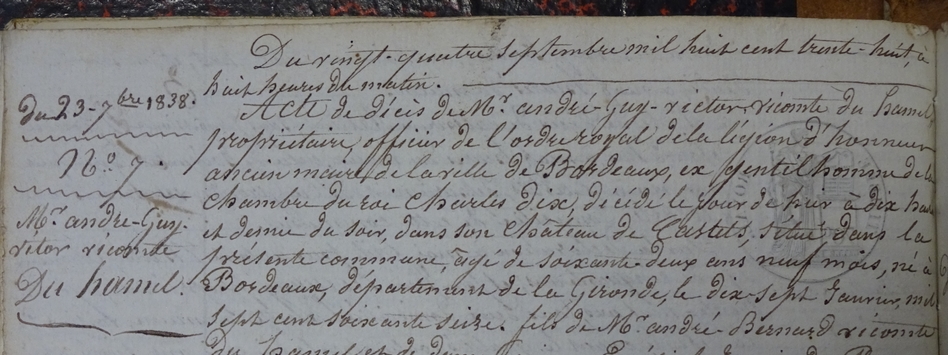 Du vingt-quatre septembre mil huit cent trente-huit, à
huit heures du matin.
Du 23-7bre 1838.
No 7.
Mr andré-Guy-
victor vicomte
Du hamel.
Acte de décès de Mr andré-Guy-victor, vicomte du hamel
propriétaire, officier de l'ordre royal de la légion d'honneur
ancien maire de la ville de Bordeaux, ex gentilhomme de la
Chambre du roi Charles dix, décédé le jour de hier à dix heures
et demie du soir, dans son Château de Castets, situé dans la
présente commune, agé de soixante-deux ans neuf mois, né à
Bordeaux, département de la Gironde, le dix-sept Janvier, mil
sept cent soixante seize. fils de Mr andré-Bernard vicomte
Du hamel et de